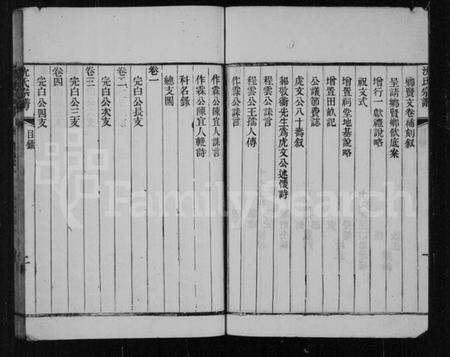 沈氏宗譜
鄉賢文卷補刻叙
呈請鄉賢鄉飲底案
增行一獻禮說略
祝文式
增置祠堂地基說略
增置田畝記
公議節費誌
虎文公八十壽叙
鄒敬齋先生爲虎文公述懷詩
程雲公王孺人傳
程雲公誄言
作霖公誄言
作霖公陳宜人誄言
作霖公陳宜人輓詩
科名錄
總支圖
卷一
完白公長支
卷二
完白公次支
卷三
完白公三支
卷四
完白公四支
目錄
FamilySearch